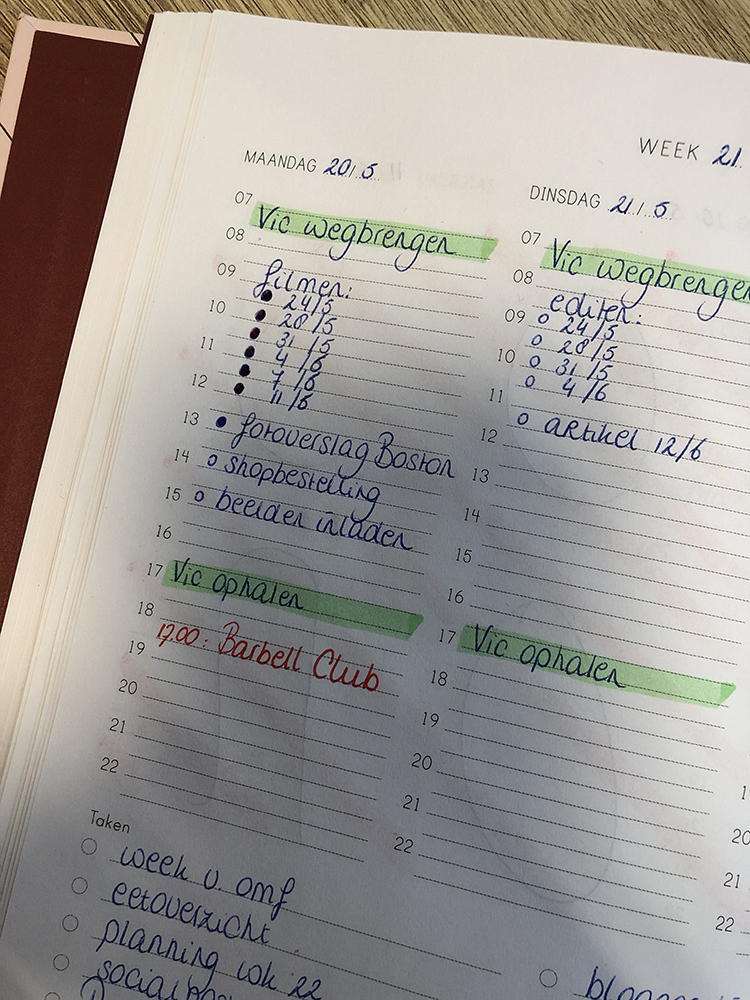 WEEK 21.
MAANDAG 20/5
07
Vic wegbrengen
08
09
filmen:
● 24/5
10
● 28/5
● 31/5
11
● 4/6
● 7/6
12
● 11/6
13
● fotoverslag Boston
14
○ shopbestelling
15
○ beelden inladen
16
17
Vic ophalen
18
19.00: Barbell Club
19
20
21
22
Taken
○ week v. omf
○ eetoverzicht
○ planning wk 22
DINSDAG 21/5
07
Vic wegbrengen
08
editen:
09
○ 24/5
○ 28/5
10
○ 31/5
○ 4/6
11
○ artikel 12/6
12
13
14
15
16
17
Vic ophalen
18
19
20
21
22
20
21
22